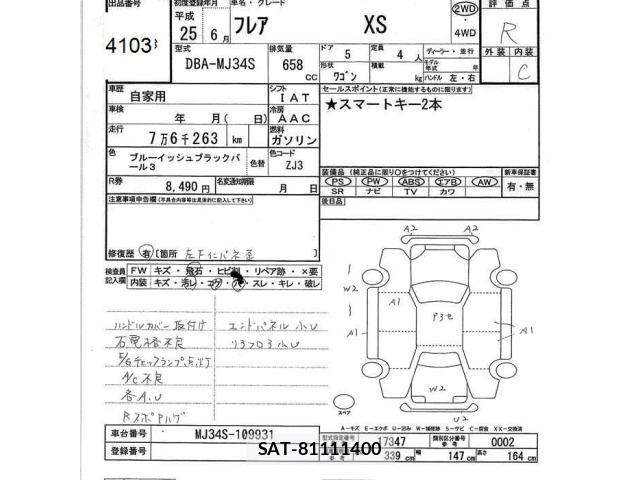 出品番号
4103
初度登録年月
平成
25 6月
車名・グレード
フレア XS
2WD
・
4WD
評価点
R
外装 内装
C
型式
DBA-MJ34S
排気量
658 cc
ドア 5
定員 4 人
形状 ワゴン
積載 kg
ディーラー・並行
モデル年式 年
ハンドル 左・右
車歴
自家用
シフト
IAT
車検
年 月( 日)
冷房
AAC
走行
7万6千263 km
燃料
ガソリン
色
ブルーイッシュブラックパール3
色替
色コード
ZJ3
R券
8,490円
名変通知期限
月 日
セールスポイント(正常に機能するものに限ります)
★スマートキー2本
装備品(純正品に限り○をつけてください)
PS PW ABS エアB AW
SR ナビ TV カワ
新車保証書
有・無
後日品
注意事項申告欄(不具合内容等は具体的に記入して下さい)
修復歴 有 〔箇所 左Fインパネ歪 〕
検査員記入欄
FW キズ・飛石・ヒビ割・リペア跡・×要
内装 キズ・汚レ・コゲ・穴・スレ・キレ・破レ
ハンドルカバー取付け エンドパネル小U
石電格不良 リフロア小U
E/Gチェックランプ点灯
A/C不良
各A.U
A2 A2
W2
A1
A1
P3セ
A1
W2
U2
スペア
A-キズ E-エクボ U-凹み W-補修跡 S-サビ C-腐食 XX-交換済
車台番号
MJ34S-109931
登録番号
SAT-81111400
型式指定番号 17347
類別区分番号 0002
339 cm
幅 147 cm
高さ 164 cm